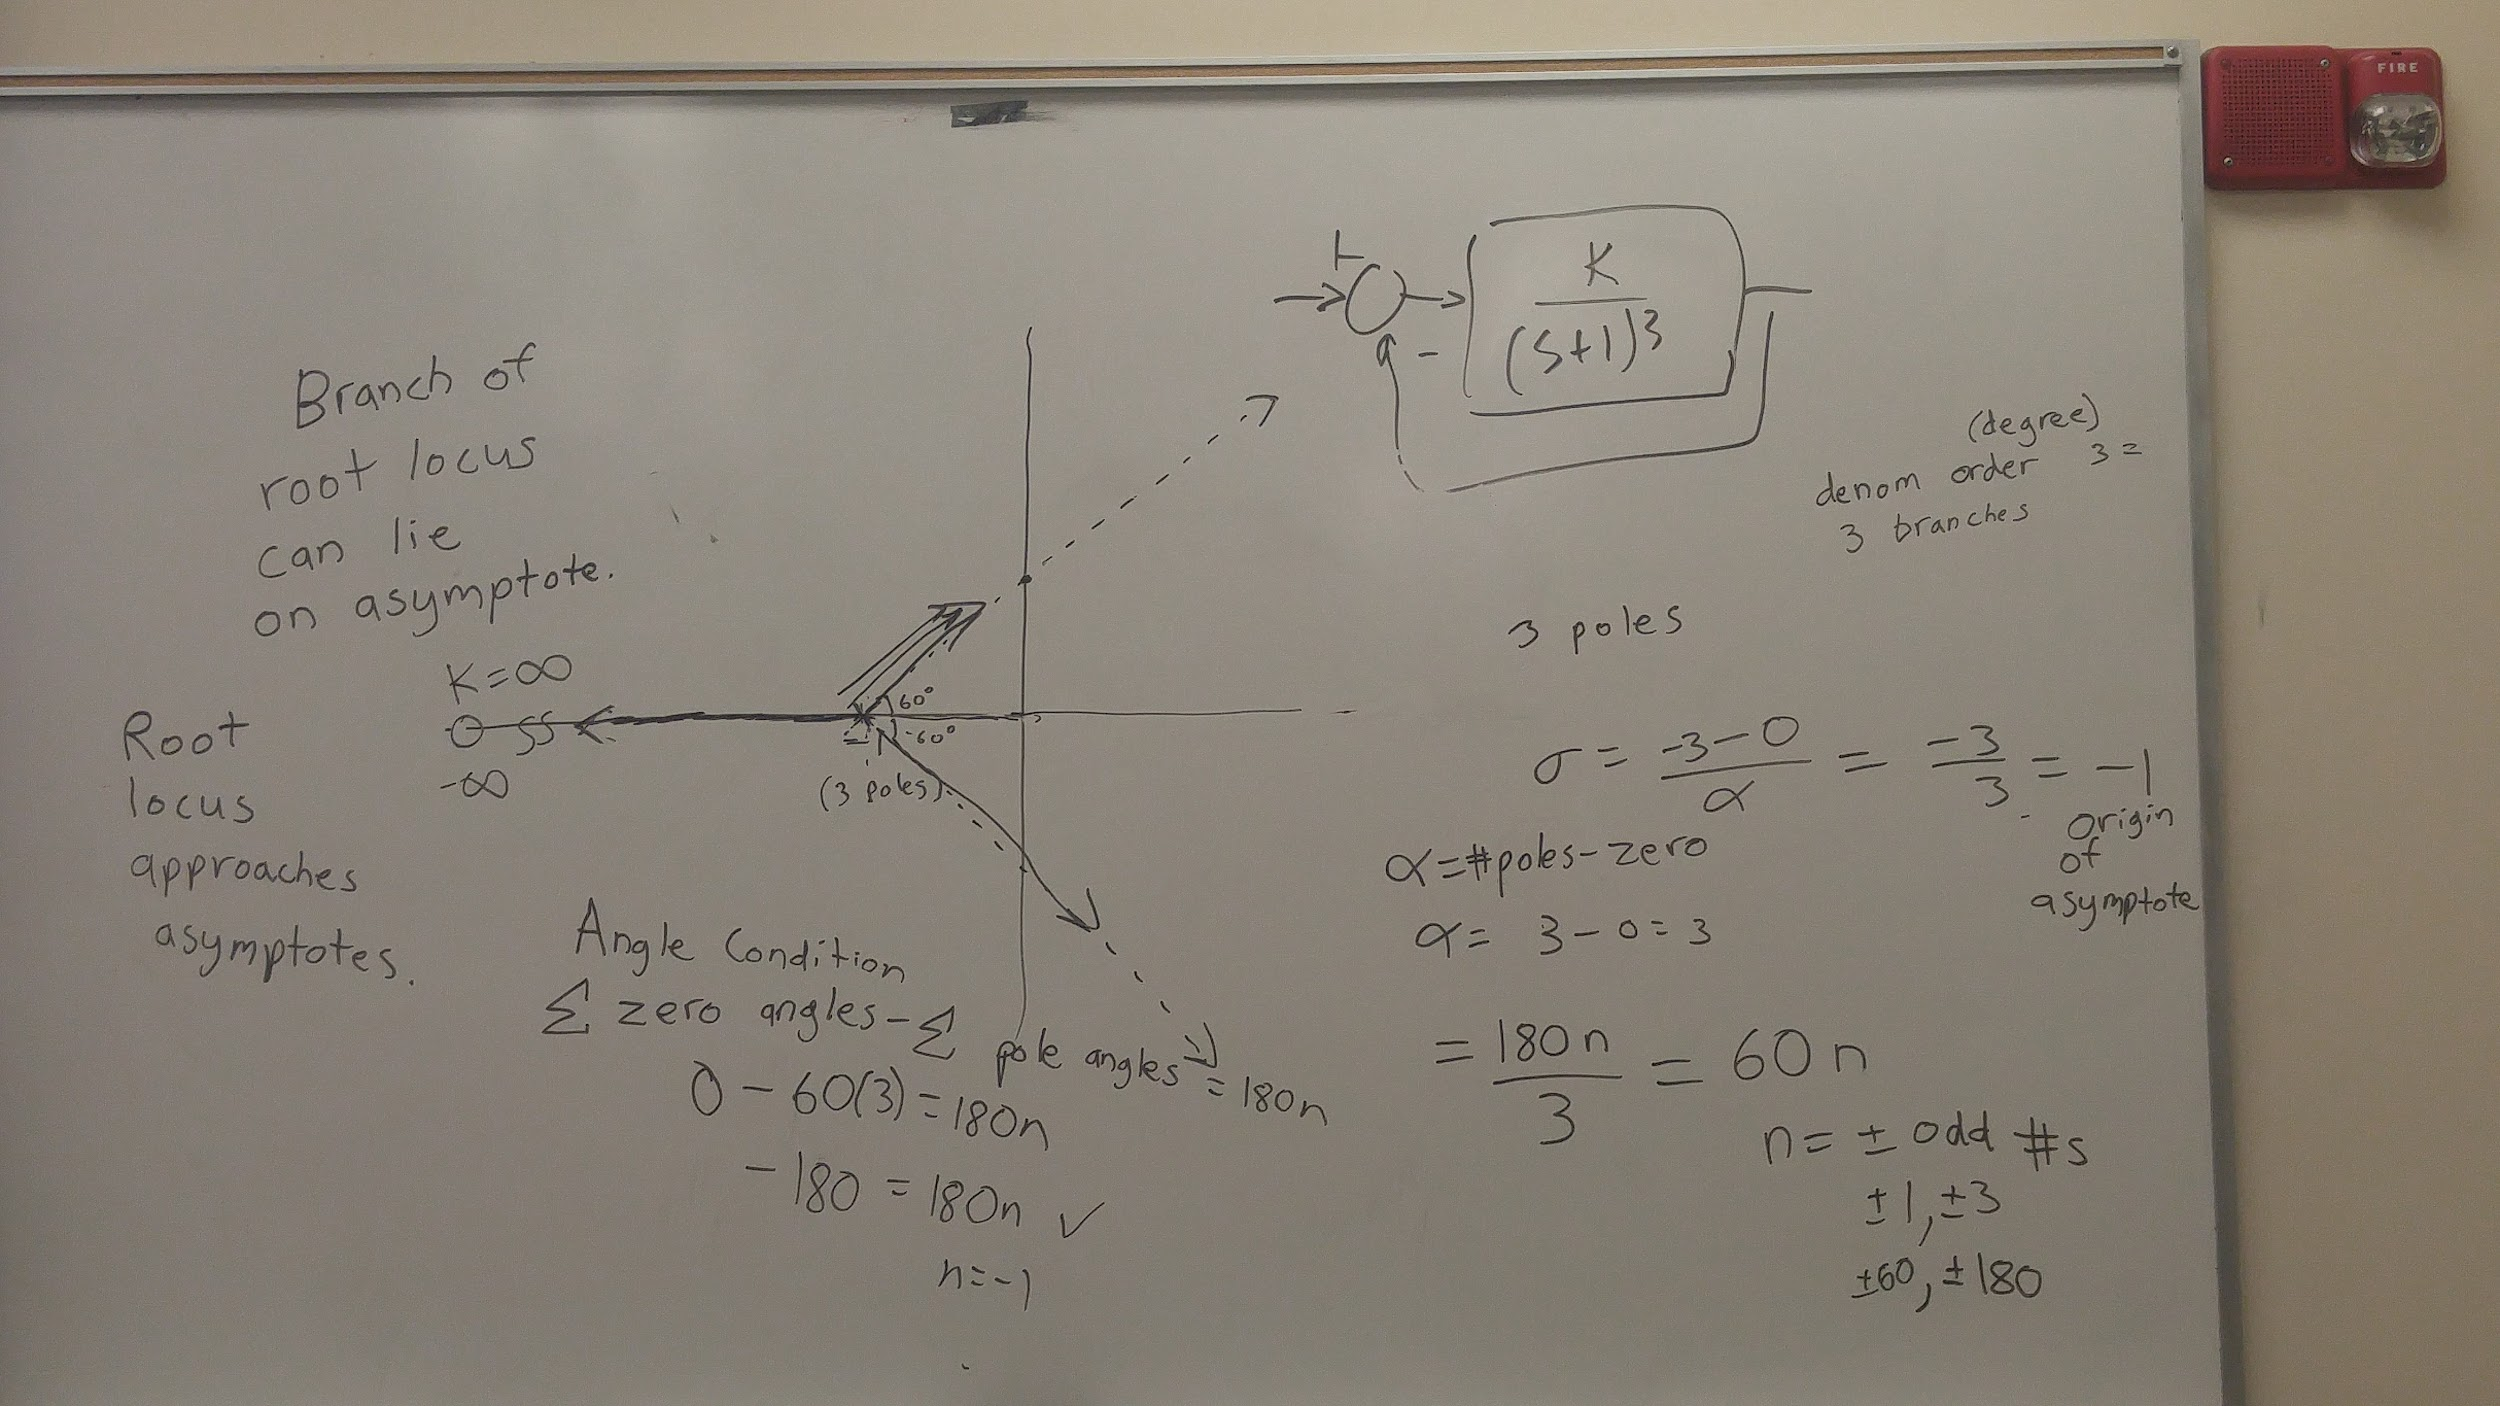 FIRE
Branch of
root locus
can lie
on asymptote.
K=∞
-∞
Root
locus
approaches
asymptotes.
60°
-60°
(3 poles)
+
-
K
(S+1)^3
(degree)
denom order 3 =
3 branches
3 poles
σ = (-3-0)/α = -3/3 = -1
origin
of
asymptote
α=#poles-zero
α= 3-0=3
= 180n/3 = 60n
n= ± odd #s
±1, ±3
±60, ±180
Angle Condition
Σ zero angles - Σ pole angles = 180n
0 - 60(3) = 180n
-180 = 180n ✓
n=-1